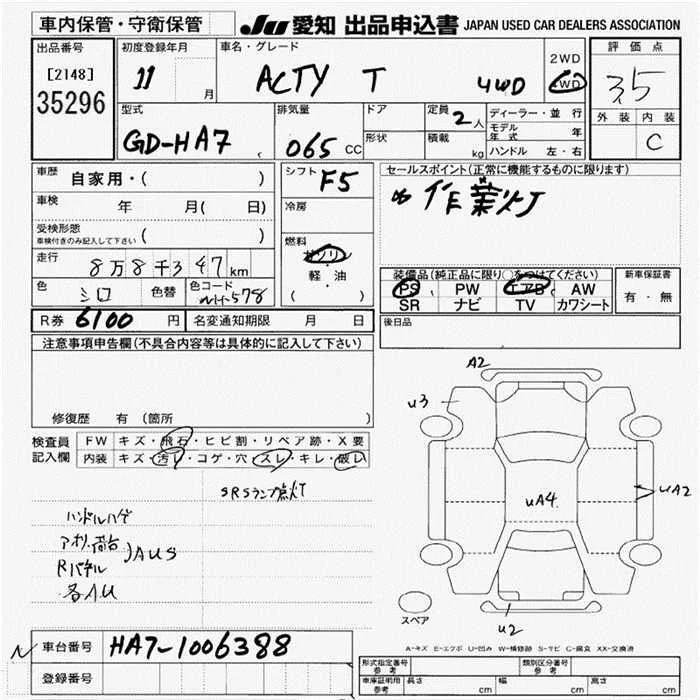 車内保管・守衛保管
JU 愛知 出品申込書 JAPAN USED CAR DEALERS ASSOCIATION
出品番号
[2148]
35296
初度登録年月
11 月
車名・グレード
ACTY T 4WD
2WD
4WD
評価点
3.5
外装 内装
C
型式
GD-HA7
排気量
065 CC
ドア
形状
定員 2 人
積載 kg
ディーラー・並行
モデル年式 年
ハンドル 左・右
車歴 自家用・( )
車検 年 月( 日)
受検形態
車検付きのみ記入して下さい ( )
走行 8万8千347km
色 シロ 色替 色コード 578
シフト F5
冷房
燃料
ガソリン
・
軽油
( )
セールスポイント(正常に機能するものに限ります)
作業灯
装備品(純正品に限り○をつけてください)
PS PW エアB AW
SR ナビ TV カワシート
新車保証書
有・無
R券 6100 円 名変通知期限 月 日
後日品
注意事項申告欄(不具合内容等は具体的に記入して下さい)
修復歴 有 (箇所 )
検査員記入欄
FW キズ・飛石・ヒビ割・リペア跡・X要
内装 キズ・汚レ・コゲ・穴・スレ・キレ・破レ
SRSランプ点灯
ハンドルハゲ
Rパネル
各AU
AUS
A2
U3
UA2
UA4
U2
スペア
A-キズ E-エクボ U-凹み W-補修跡 S-サビ C-腐食 XX-交換済
車台番号 HA7-1006388
登録番号
形式指定番号 参考
類別区分番号 参考
車庫証明用 参考 長さ cm 幅 cm 高さ cm